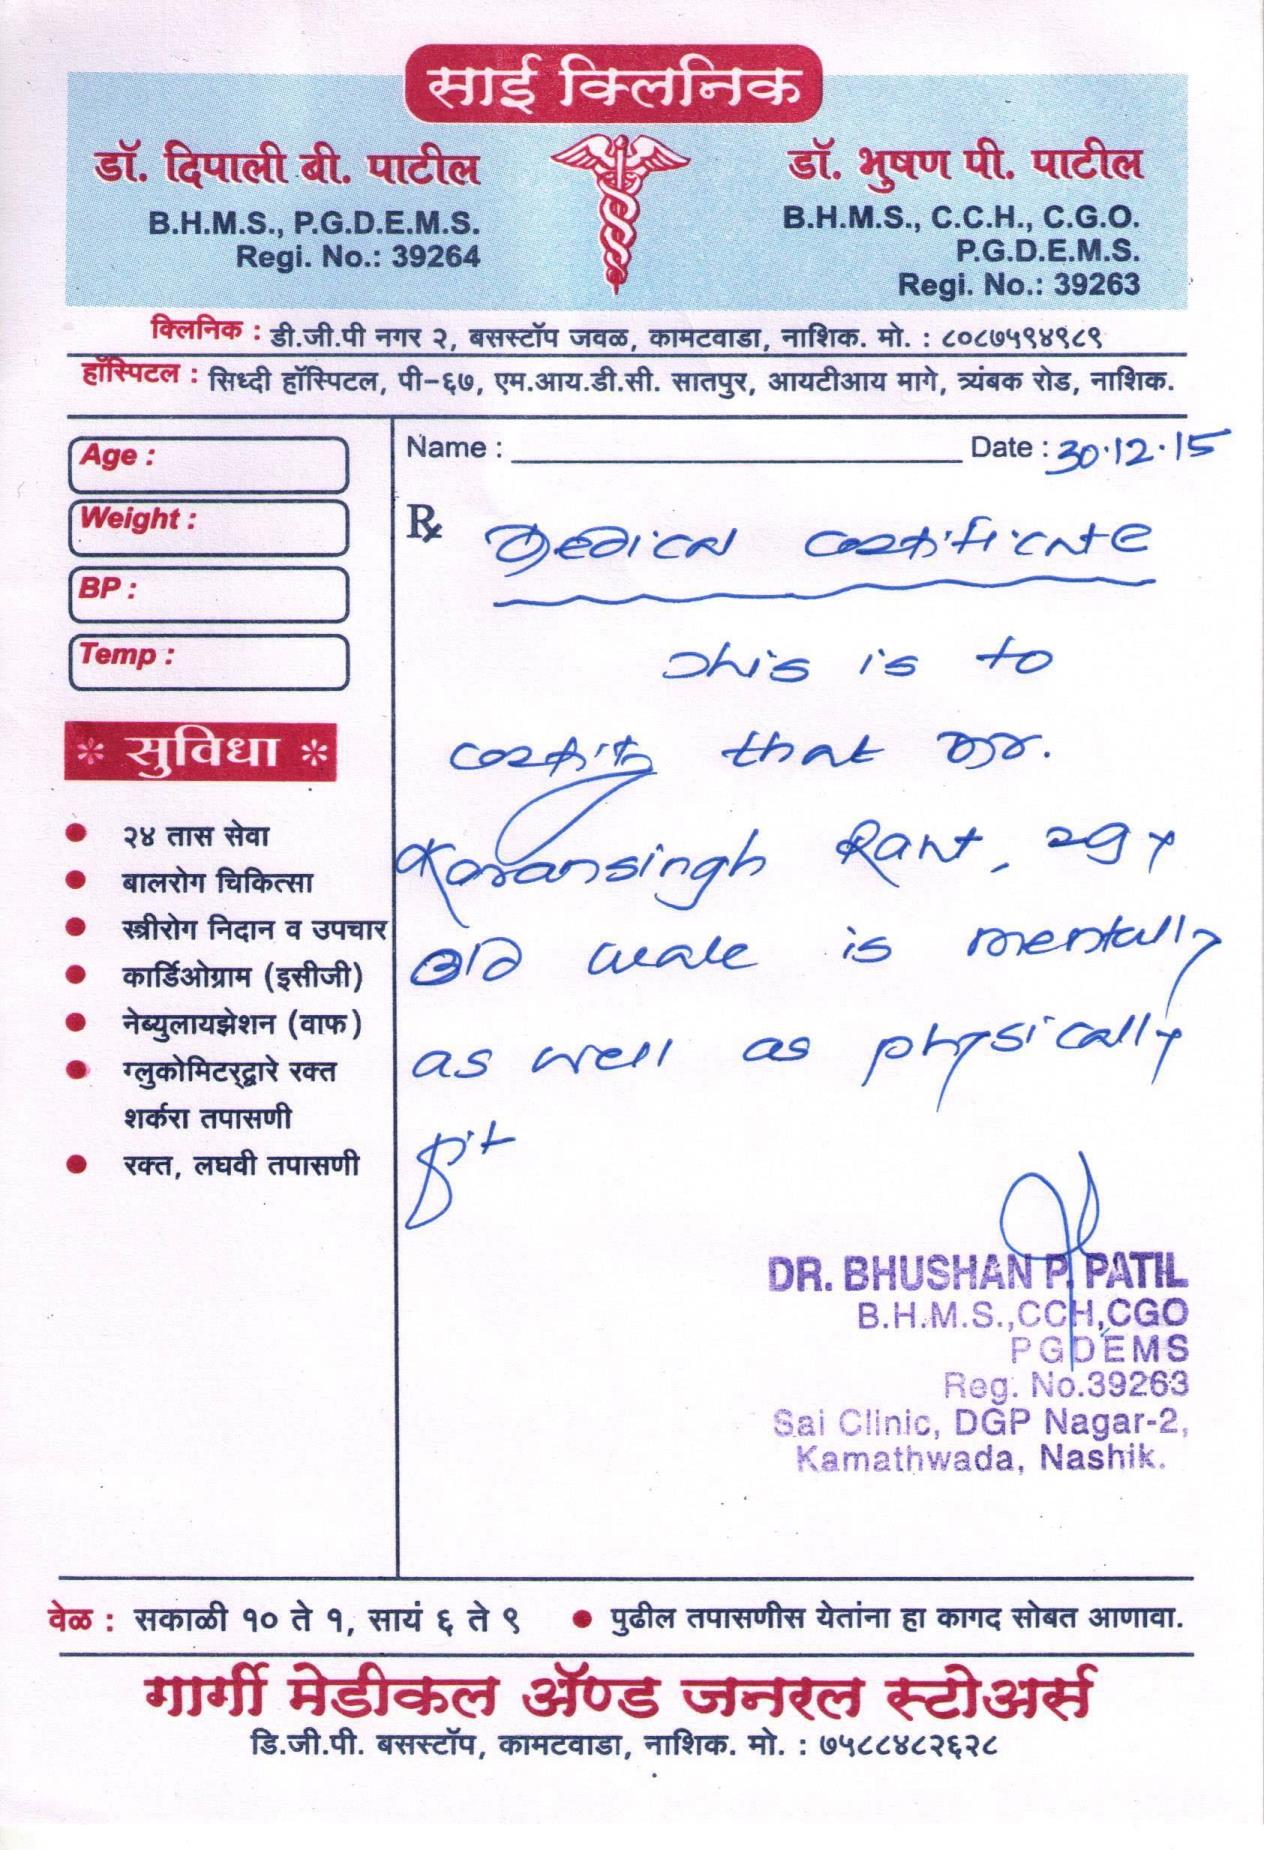 साई क्लिनिक
डॉ. दिपाली बी. पाटील
B.H.M.S., P.G.D.E.M.S.
Regi. No.: 39264
डॉ. भुषण पी. पाटील
B.H.M.S., C.C.H., C.G.O.
P.G.D.E.M.S.
Regi. No.: 39263
क्लिनिक : डी.जी.पी नगर २, बसस्टॉप जवळ, कामटवाडा, नाशिक. मो. : ८०८७५९४९८९
हॉस्पिटल : सिध्दी हॉस्पिटल, पी-६७, एम.आय.डी.सी. सातपुर, आयटीआय मागे, त्र्यंबक रोड, नाशिक.
Age :
Weight :
BP :
Temp :
* सुविधा *
२४ तास सेवा
बालरोग चिकित्सा
स्त्रीरोग निदान व उपचार
कार्डिओग्राम (इसीजी)
नेब्युलायझेशन (वाफ)
ग्लुकोमिटरद्वारे रक्त
शर्करा तपासणी
रक्त, लघवी तपासणी
Name : Date : 30.12.15
℞ Medical Certificate
This is to
certify that Mr.
Karansingh Raut, 29 y
old male is mentally
as well as physically
fit
DR. BHUSHAN P. PATIL
B.H.M.S.,CCH,CGO
PGDEMS
Reg. No.39263
Sai Clinic, DGP Nagar-2,
Kamathwada, Nashik.
वेळ : सकाळी १० ते १, सायं ६ ते ९ • पुढील तपासणीस येतांना हा कागद सोबत आणावा.
गार्गी मेडीकल ॲण्ड जनरल स्टोअर्स
डि.जी.पी. बसस्टॉप, कामटवाडा, नाशिक. मो. : ७५८८४८२६२८